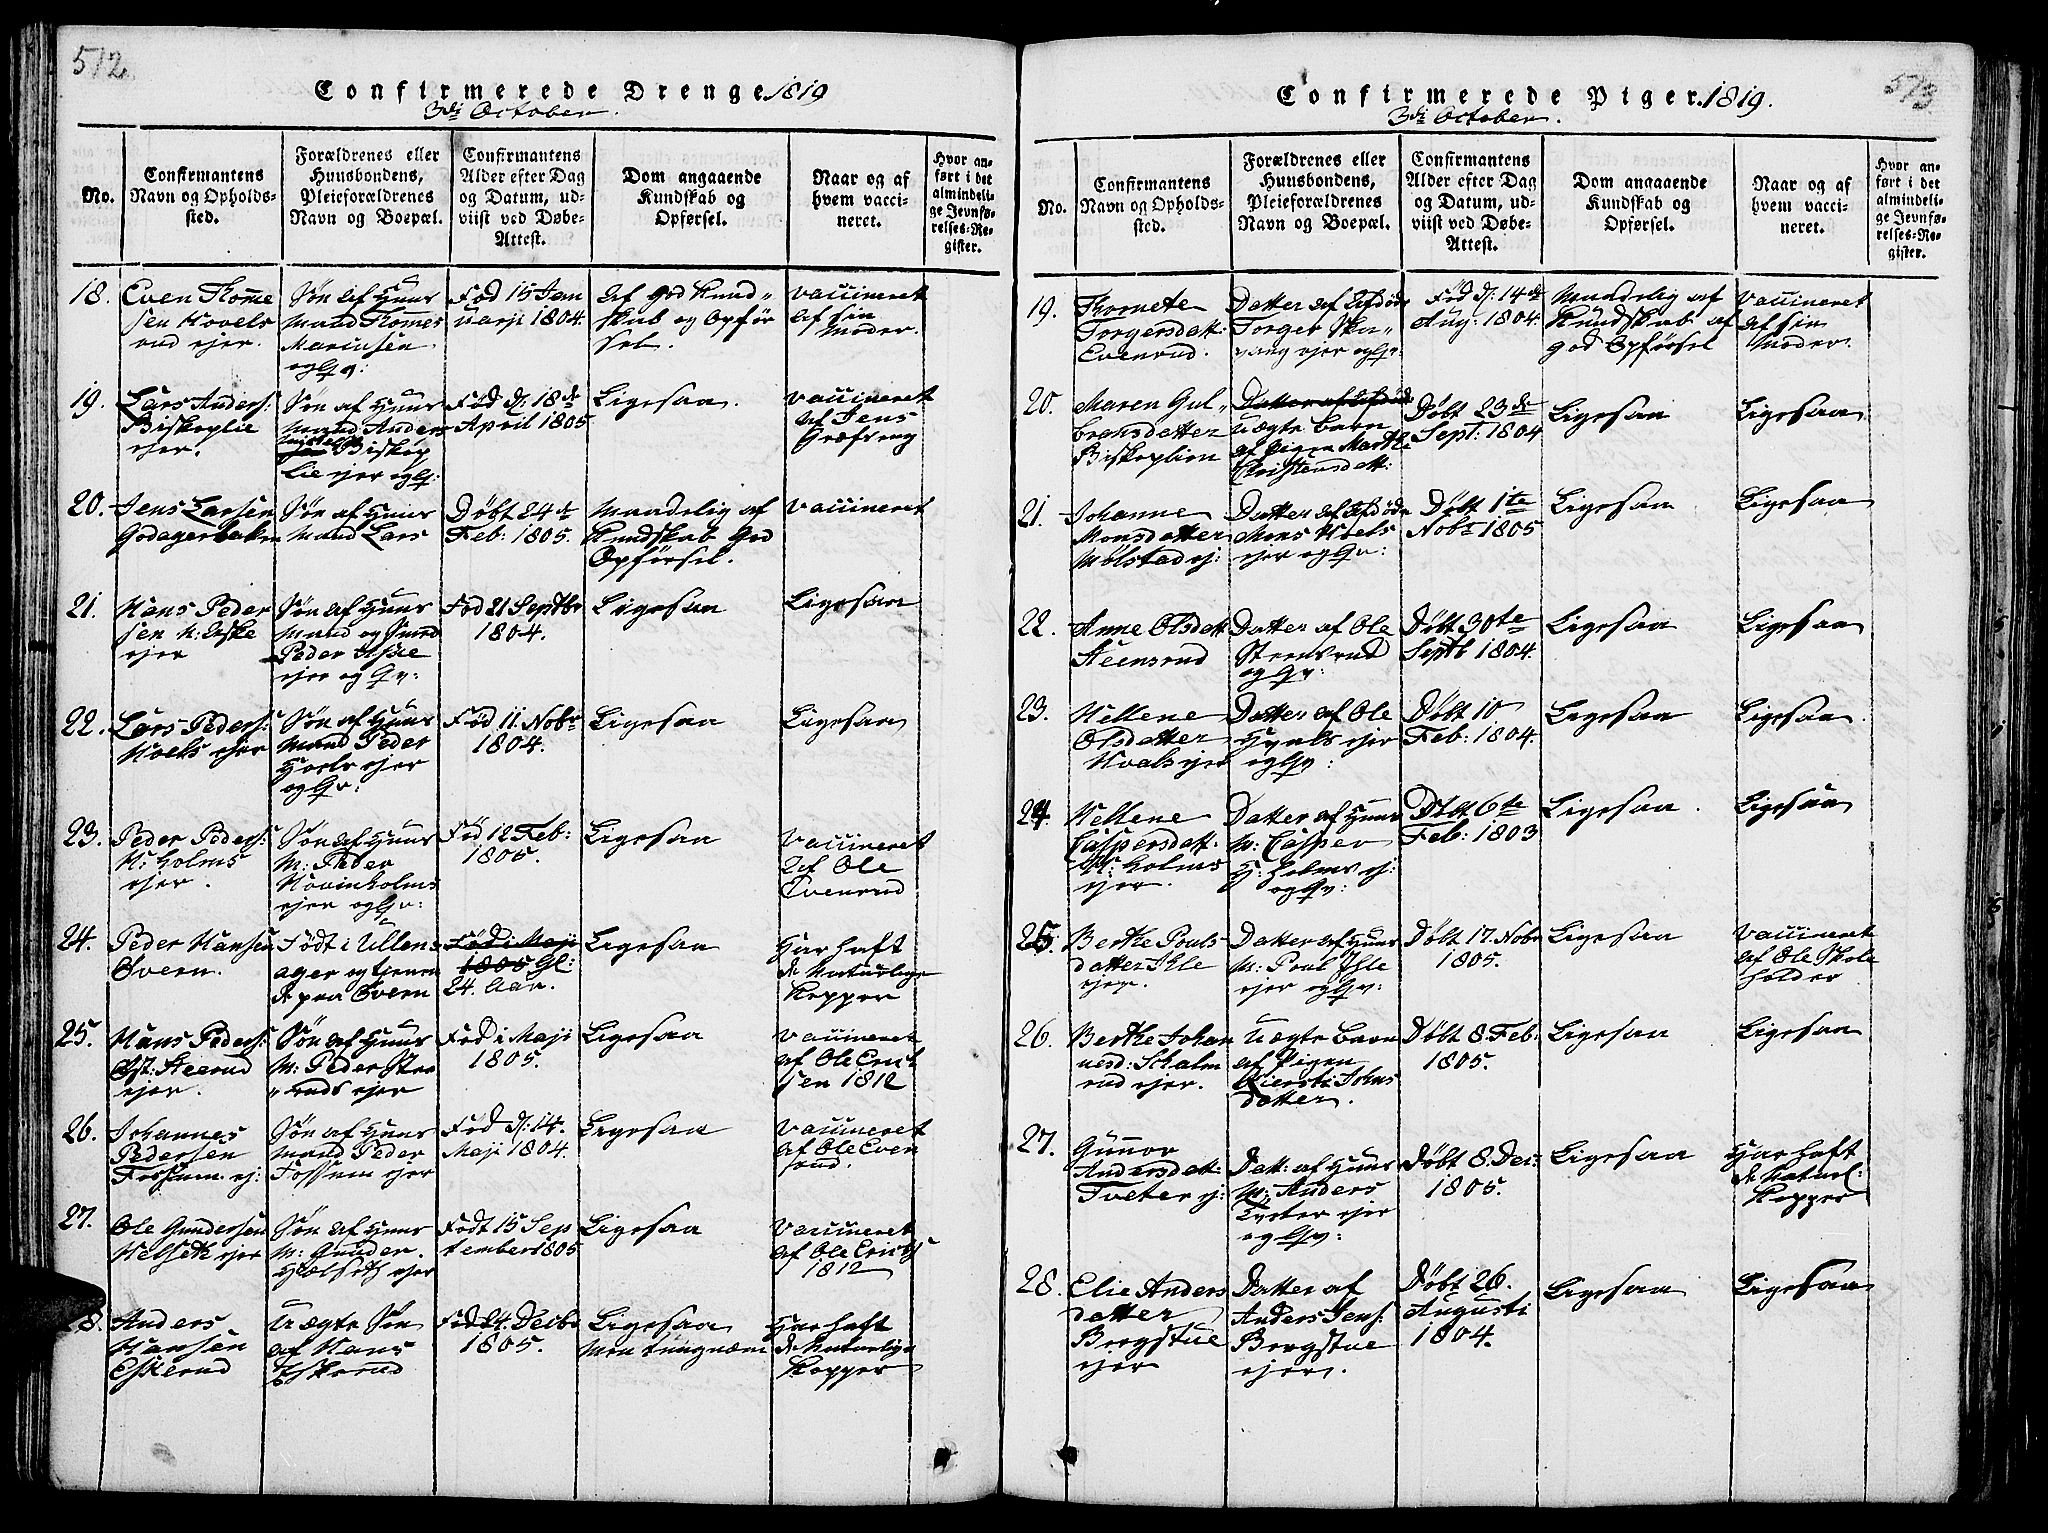 512.
Confirmerede Drenge 1819
3di October.
No.
Confirmantens
Navn og Opholds-
sted.
Forældrenes eller
Huusbondens,
Pleieforældrenes
Navn og Boepæl.
Confirmantens
Alder efter Dag
og Datum, ud-
viist ved Døbe-
Attest.
Dom angaaende
Kundskab og
Opførsel.
Naar og af
hvem vacci-
neret.
Hvor an-
ført i det
almindeli-
ge Jevnfø-
relses-Re-
gister.
18.
Even Thome
sen Hovels
rud ejer.
Søn af Huus
Mand Thomes
Mariusen
og Gv:
Fød 15 Jan
uarji 1804.
af god Kund-
skab og Opfør
sel.
vaccineret
af sin
Moder.
19.
Lars Anders:
Biskoplie
ejer.
Søn af Huus
Mand Anders
Biskop
Lie ejer og Gv:
Fød d: 18de
April 1805
Ligesaa.
vaccineret
af Jens
Græfseng
20.
Jens Larsen
Godagerbaken
Søn af Huus
Mand Lars
Døbt 24de
Feb: 1805.
Maadelig af
Kundskab god
Opførsel.
vaccineret
21.
Hans Peder
sen
ejer
Søn af Huus
Mand og Smed
Peder
ejer og Gv:
Fød 21 Septbr
1804.
Ligesaa
Ligesaa
22.
Lars Peders:
Hoels ejer
Søn af Huus
Mand Peder
Hoels ejer
og Gv:
Fød 11. Nobr
1804.
Ligesaa
Ligesaa
23.
Peder Peders:
H: Holms
ejer.
Søn af Huus
M: Peder
Hovinholms
ejer og Gv:
Fød 12 Feb:
1805.
Ligesaa
Vaccineret
af Ole
Evenrud
24.
Peder Hansen
Øvern.
Født i Ullens
ager og tjenen
de paa Øvern
Fød i Maji
1805 Gl:
24. Aar.
Ligesaa
Har haft
de Naturlige
Kopper
25.
Hans Peders:
Øst: Steerud
ejer.
Søn af Huus
M: Peder Stee
ruds ejer
Fød i Maji
1805.
Ligesaa
vaccineret
af Ole Erick
sen 1812
26.
Johannes
Pedersen
Fossum ej:
Søn af Huus
mand Peder
Fossum ejer
Fød d: 14.
Maji 1804.
Ligesaa
vaccineret
af Ole Even
rud.
27.
Ole Gundersen
Helseth ejer
Søn af Huus
M: Gunder.
Hælseth ejer
Født 15 Sep
tember 1805
Ligesaa
Vaccineret
af Ole Ericks
1812
28.
Anders
Hansen
Eskerud
Uægte Søn
af Hans
Eskerud
Fød 24. Decbr
1805.
Ligesaa
men tungnæm
Har haft
de Naturlige
Kopper
573
Confirmerede Piger. 1819.
3di October.
No.
Confirmantens
Navn og Opholds-
sted.
Forældrenes eller
Huusbondens,
Pleieforældrenes
Navn og Boepæl.
Confirmantens
Alder efter Dag
og Datum, ud-
viist ved Døbe-
Attest.
Dom angaaende
Kundskab og
Opførsel.
Naar og af
hvem vacci-
neret.
Hvor an-
ført i det
almindeli-
ge Jevnfø-
relses-Re-
gister.
19.
Thornete
Torgersdatt:
Evenrud.
Datter af Afdøde
Torger Ska-
vang ejer og Gv:
Fød d: 14de
Aug: 1804.
Maadelig af
Kundskab af
god Opførsel
Vaccineret
af sin
Moder.
20.
Maren Gul-
bransdatter
Biskoplien
Datter af Afdøde
Uægte Barn
af Pigen Marthe
Christensdatt:
Døbt 23de
Sept: 1804
Ligesaa
Ligesaa
21.
Johanne
Monsdatter
Mølstad ej:
Datter af Afdøde
Mons Hoels
ejer og Gv:
Døbt 1te
Nobr 1805
Ligesaa
Ligesaa
22.
Anne Olsdatt
Steensrud
Datter af Ole
Steensrud
og Gv:
Døbt 30te
Septb 1804.
Ligesaa
Ligesaa
23.
Hellene
Olsdatter
Hvals ejer
Datter af Ole
Hvals ejer
og Gv:
Døbt 10
Feb: 1804.
Ligesaa
Ligesaa.
24.
Hellene
Caspersdatt.
H: Holms
ejer.
Datter af Huus
M: Casper
H: Holms ej:
og Gv:
Døbt 6te
Feb: 1803
Ligesaa.
Ligesaa
25.
Berthe Pouls
datter Ihle
ejer.
Datter af Huus
M: Poul Ihle
ejer og Gv:
Døbt 17. Nobr
1805.
Ligesaa
vaccineret
af Ole Skole
holder
26.
Berthe Johan
nesd: Skalm
rud ejer.
Uægte Barn
af Pigen
Kiersti Johns
datter.
Døbt 8. Feb:
1805.
Ligesaa
Ligesaa
27.
Gunnor
Andersdatt:
Tveter ej:
Datt: af Huus
M: Anders
Tveter ejer
og Gv:
Døbt 8. Dec:
1805.
Ligesaa
Har haft
de Naturl:
Kopper
28.
Elie Anders
datter
Bergstue
ejer
Datter af
Anders Jens:
Bergstue
ejer.
Døbt 26.
Augusti
1804.
Ligesaa
Ligesaa